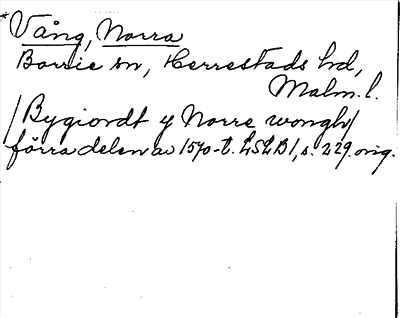 *Vång, Norra
Borrie sn, Herrestads hd,
Malm. l.
/Bygiordt y Norre wongh/
förra delen av 1570-t. LSLB1, s. 229. orig.